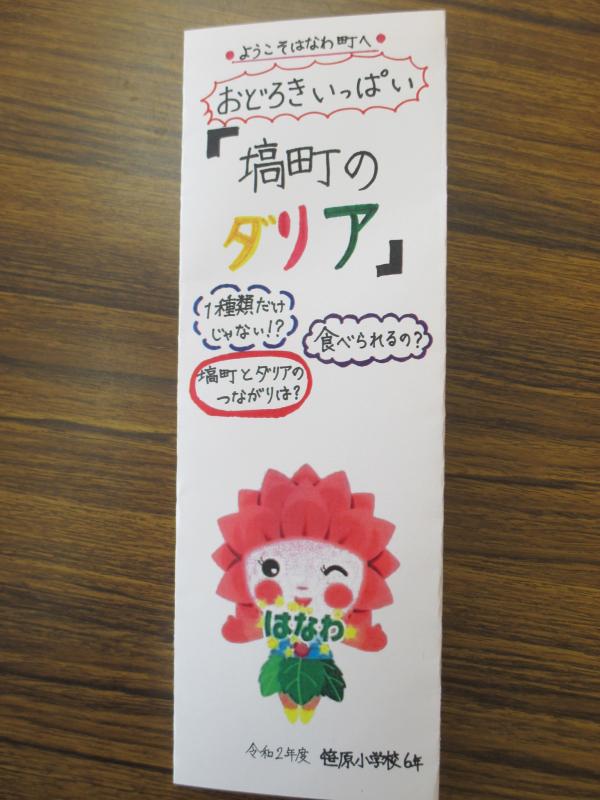 ようこそはなわ町へ
おどろきいっぱい
『塙町の
ダリア』
1種類だけ
じゃない!?
食べられるの?
塙町とダリアの
つながりは?
はなわ
令和2年度 笹原小学校6年